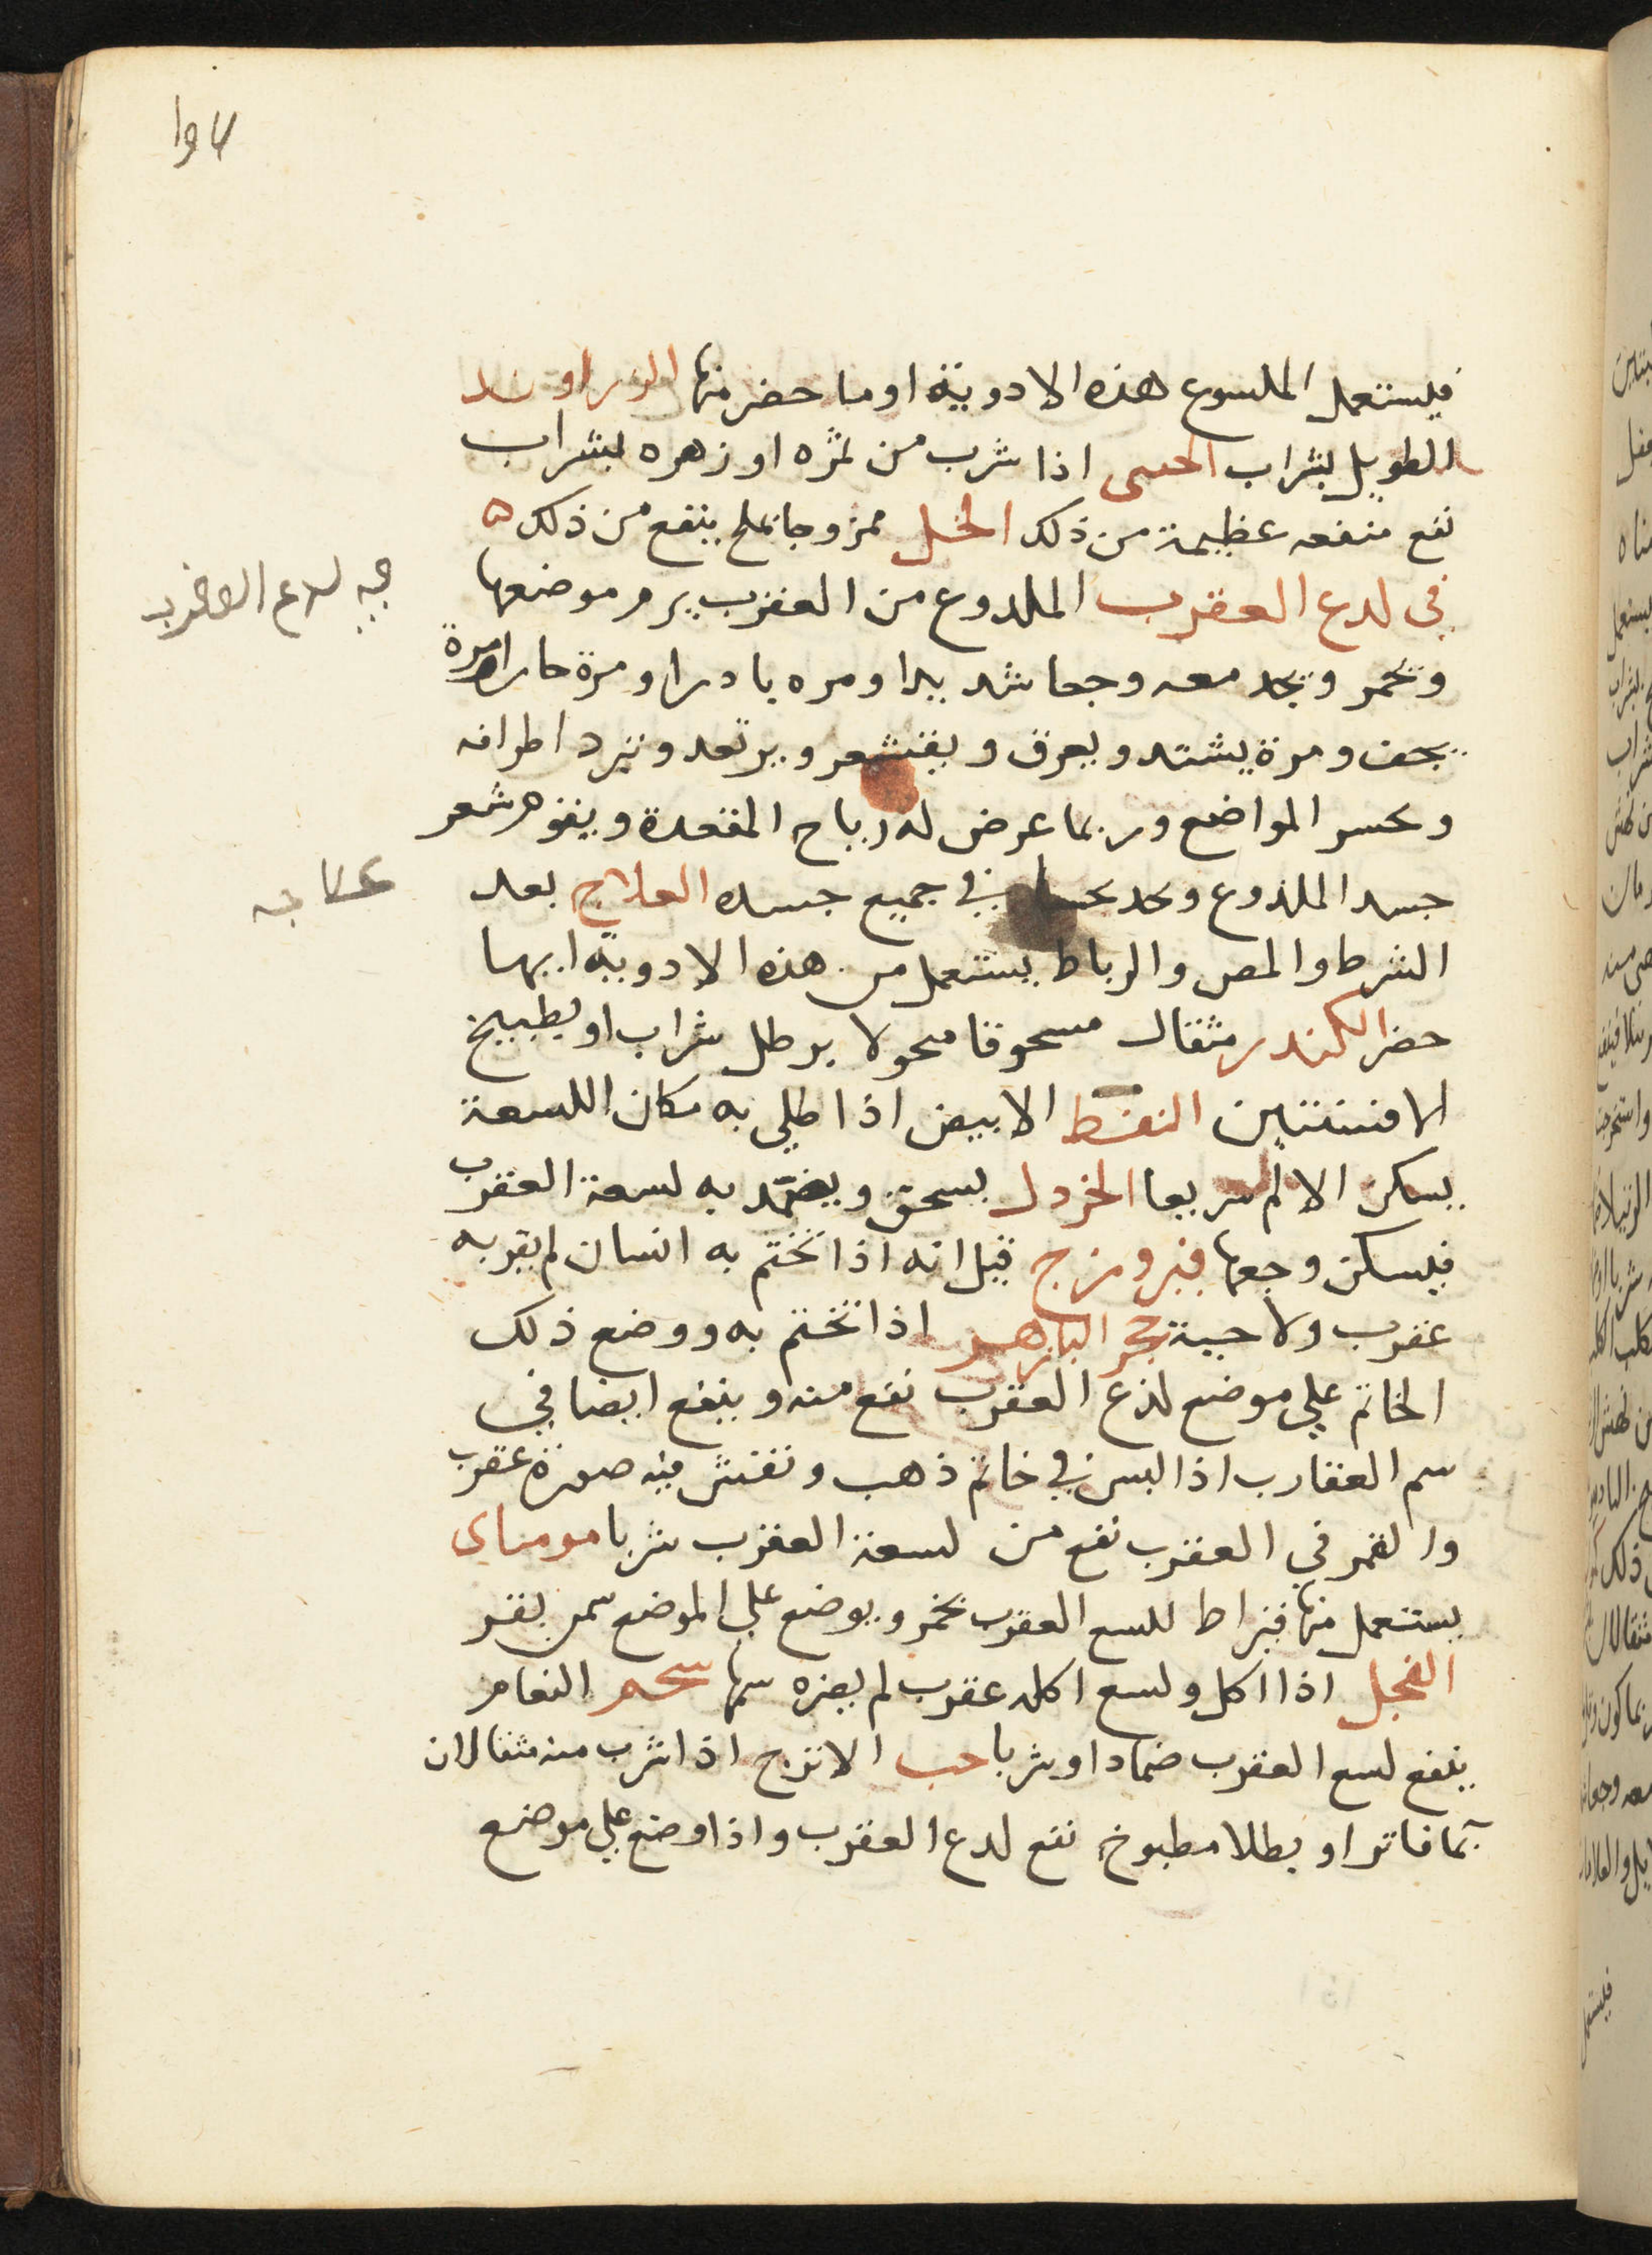 فليستعمل الملسوع هذه الادوية او ما حضر منها الزراوند
الطويل بشراب اذا شرب من ثمره او زهره بشراب
نفع منفعه عظيمة من ذلك الخل ممزوجا بملح ينفع من ذلك ه
في لدع العقرب الملدوع من العقرب يرم موضعها
في لدع العقرب
وتحمر ويجد معه وجعا شديدا ومره باردا ومرة حارا ومرة
يخف ومرة يشتد ويعرق ويقشعر ويرتعد وتبرد اطرافه
المواضع وربما عرض له رياح المقعدة ويقوم شعر
جسد الملذوع ويجد في جميع جسده العلاج بعد
علاجه
الشرط والمص والرباط يستعمل من هذه الادوية ايها
حضر الكندر مثقال مسحوقا محولا برطل شراب او بطبيخ
الافسنتين النفط الابيض اذا طلي به مكان اللسعة
يسكن الالم سريعا الخردل يسحق ويضمد به لسعة العقرب
فيسكن وجعها فيروزج قيل انه اذا تختم به انسان لم يقربه
عقرب ولا حية حجر البازهر اذا تختم به ووضع ذلك
الخاتم علي موضع لذع العقرب نفع منه وينفع ايضا في
سم العقارب اذا لبس في خاتم ذهب ونقش فيه صورة عقرب
والقمر في العقرب نفع من لسعة العقرب شربا موميای
يستعمل منها قيراط للسع العقرب بخمر ويوضع علي الموضع سمن بقر
الفجل اذا اكل ولسع اكله عقرب لم يضره سمها شحم النعام
ينفع لسع العقرب ضمادا وشربا حب الاترج اذا شرب منه مثقالان
بما فاتر او بطلا مطبوخ نفع لدع العقرب واذا وضع علي موضع